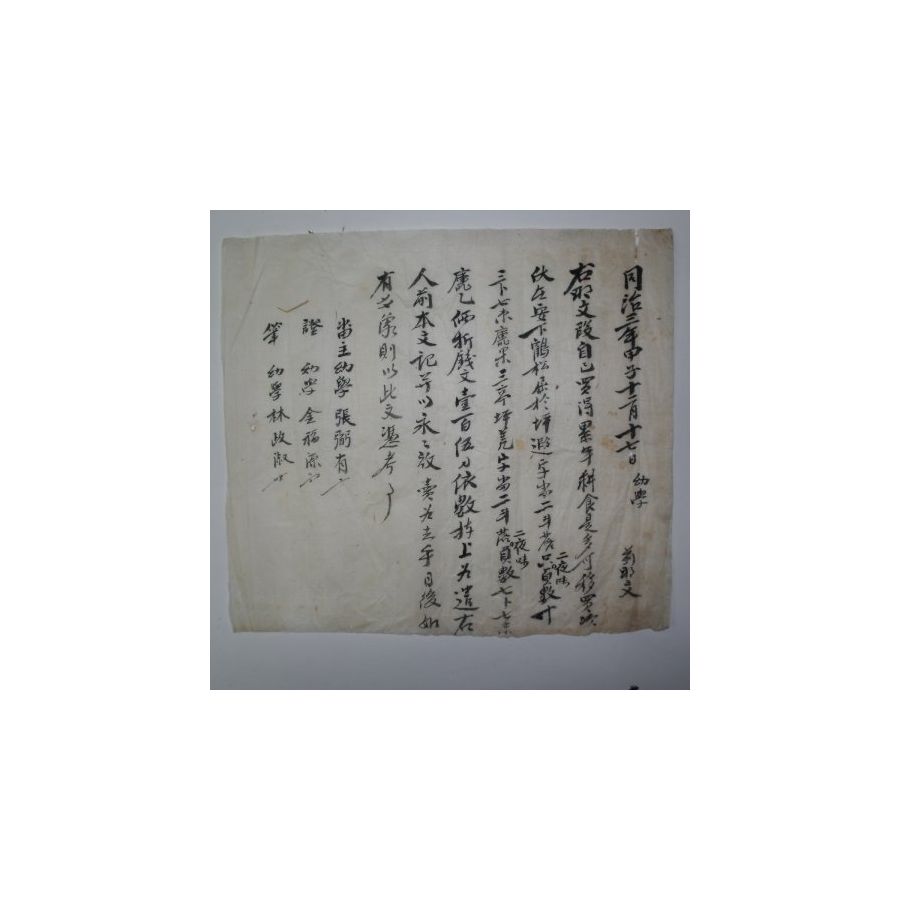 同治三年甲子十二月十七日 幼學 前明文
右明文段自己買得累年耕食是多可移買次
伏在安下鶴松居於坪遐字畓二斗落只二夜味負數十
三卜七束庫果三亭坪羌字畓二斗落二夜味負數七卜七束
庫乙価折錢文壹百伍刀依數捧上为遣右
人前本文記幷以永〻放賣为去乎日後如
有 則以此文憑考
畓主幼學張弼有
證 幼學金福
筆 幼學林政淑